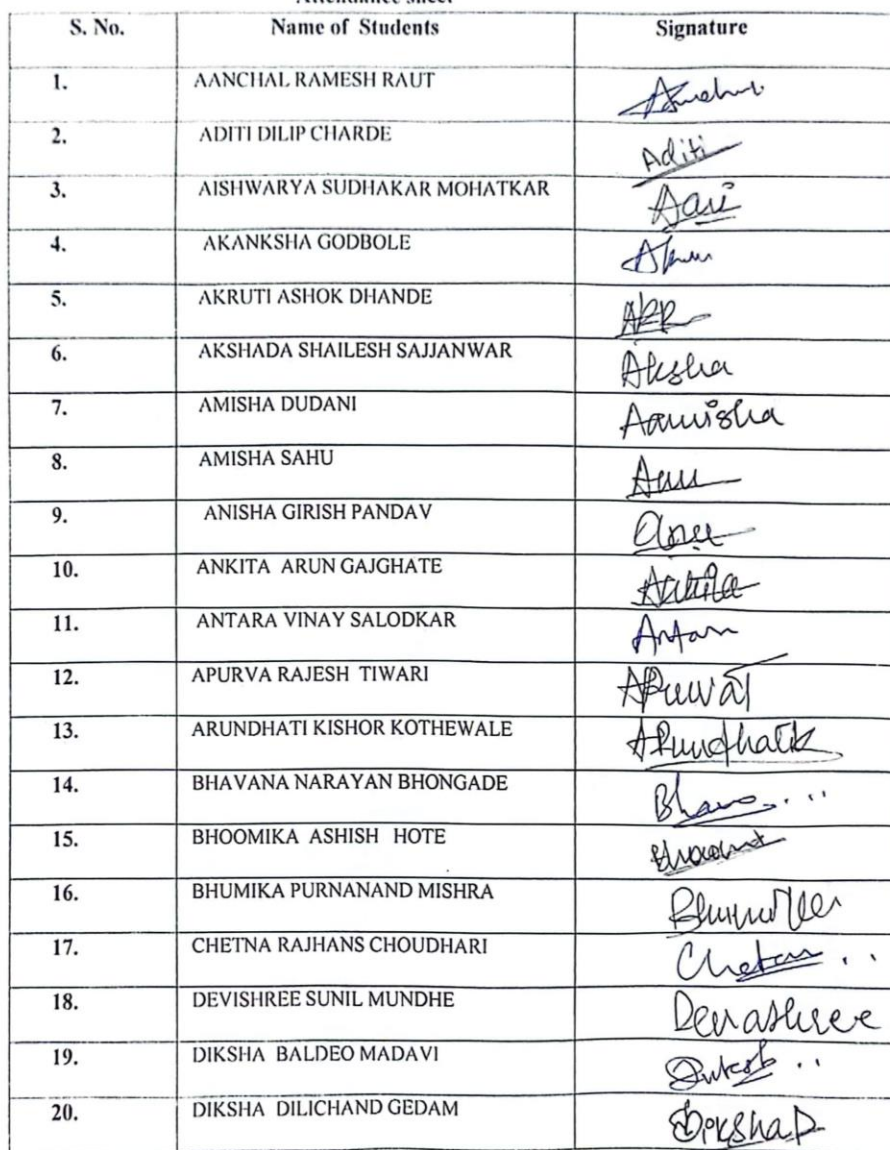 Attendance sheet
S. No. Name of Students Signature
1. AANCHAL RAMESH RAUT
2. ADITI DILIP CHARDE Aditi
3. AISHWARYA SUDHAKAR MOHATKAR
4. AKANKSHA GODBOLE
5. AKRUTI ASHOK DHANDE
6. AKSHADA SHAILESH SAJJANWAR Aksha
7. AMISHA DUDANI Aamisha
8. AMISHA SAHU
9. ANISHA GIRISH PANDAV
10. ANKITA ARUN GAJGHATE
11. ANTARA VINAY SALODKAR Antara
12. APURVA RAJESH TIWARI
13. ARUNDHATI KISHOR KOTHEWALE ARundhatik
14. BHAVANA NARAYAN BHONGADE
15. BHOOMIKA ASHISH HOTE
16. BHUMIKA PURNANAND MISHRA
17. CHETNA RAJHANS CHOUDHARI
18. DEVISHREE SUNIL MUNDHE Devashree
19. DIKSHA BALDEO MADAVI
20. DIKSHA DILICHAND GEDAM DikshaD